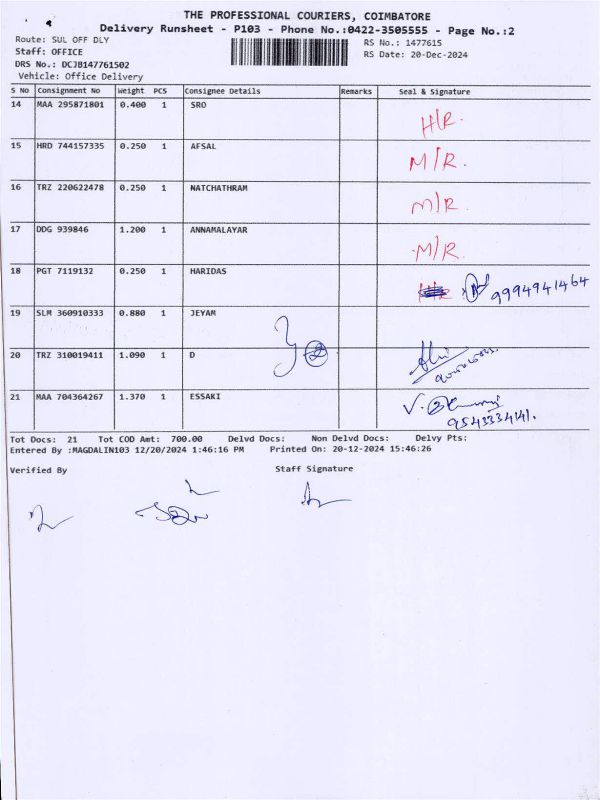 THE PROFESSIONAL COURIERS, COIMBATORE
Delivery Runsheet - P103 - Phone No.:0422-3505555 - Page No.:2
Route: SUL OFF DLY
RS No.: 1477615
Staff: OFFICE
RS Date: 20-Dec-2024
DRS No.: DCJB147761502
Vehicle: Office Delivery
S No Consignment No Weight PCS Consignee Details Remarks Seal & Signature
14 MAA 295871801 0.400 1 SRO H/R.
15 HRD 744157335 0.250 1 AFSAL M/R.
16 TRZ 220622478 0.250 1 NATCHATHRAM M/R.
17 DDG 939846 1.200 1 ANNAMALAYAR M/R.
18 PGT 7119132 0.250 1 HARIDAS 9994941464
19 SLM 360910333 0.880 1 JEYAM
20 TRZ 310019411 1.090 1 D
21 MAA 704364267 1.370 1 ESSAKI
Tot Docs: 21 Tot COD Amt: 700.00 Delvd Docs: Non Delvd Docs: Delvy Pts:
Entered By :MAGDALIN103 12/20/2024 1:46:16 PM Printed On: 20-12-2024 15:46:26
Verified By Staff Signature